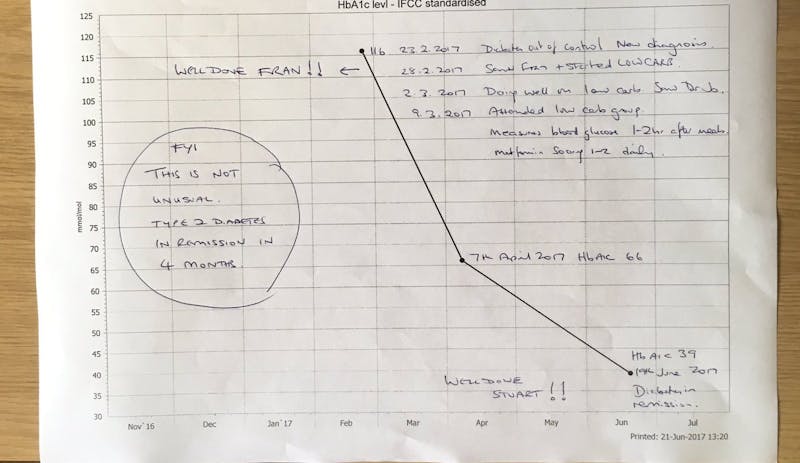 HbA1c levl - IFCC standardised
125
120
115
110
105
100
95
90
85
80
75
70
65
60
55
50
45
40
35
30
mmol/mol
116 23.2.2017 Diabetes out of control New diagnosis.
WELL DONE FRAN!! ←
28.2.2017 Saw Fran + Started LOW CARB.
2.3.2017 Doing well on low carb Saw Dr
9.3.2017 Attended low carb group
Measures blood glucose 1-2hr after meals.
metformin 500mg 1-2 daily.
FYI
THIS IS NOT
UNUSUAL.
TYPE 2 DIABETES
IN REMISSION IN
4 MONTHS.
7th April 2017 HbA1c 66
HbA1c 39
19th June 2017
Diabetes in
remission.
WELL DONE
STUART!!
Nov`16 Dec Jan`17 Feb Mar Apr May Jun Jul
Printed: 21-Jun-2017 13:20